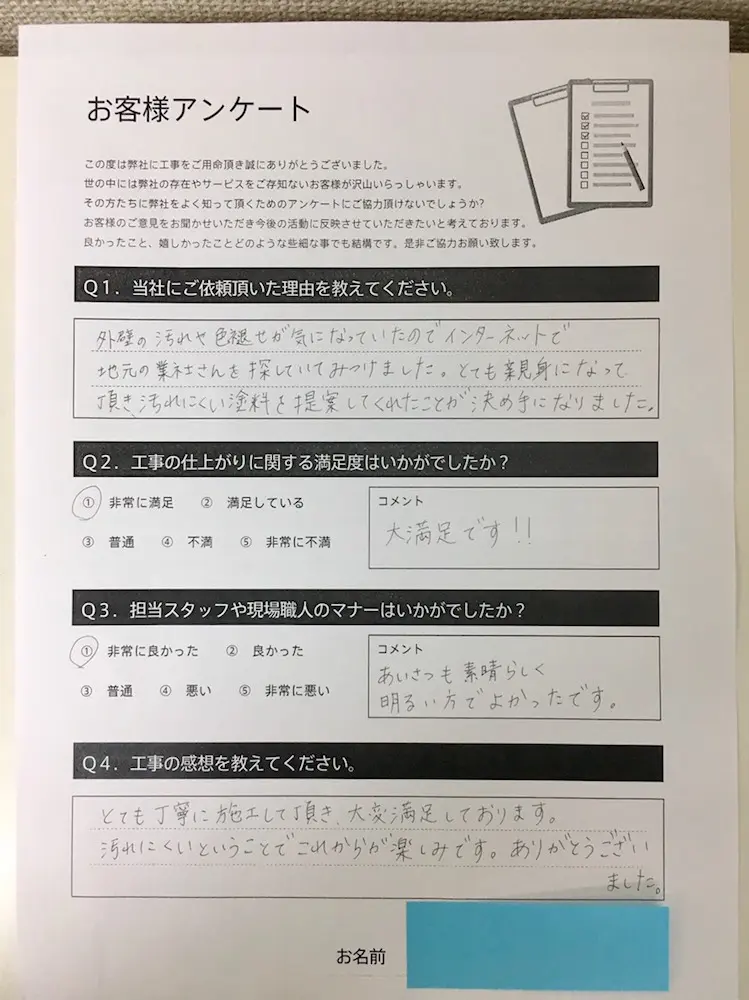 お客様アンケート
この度は弊社に工事をご用命頂き誠にありがとうございました。
世の中には弊社の存在やサービスをご存知ないお客様が沢山いらっしゃいます。
その方たちに弊社をよく知って頂くためのアンケートにご協力頂けないでしょうか?
お客様のご意見をお聞かせいただき今後の活動に反映させていただきたいと考えております。
良かったこと、嬉しかったことどのような些細な事でも結構です。是非ご協力お願い致します。
Q1．当社にご依頼頂いた理由を教えてください。
外壁の汚れや色褪せが気になっていたのでインターネットで
地元の業社さんを探していてみつけました。とても親身になって
頂き、汚れにくい塗料を提案してくれたことが決め手になりました。
Q2．工事の仕上がりに関する満足度はいかがでしたか？
① 非常に満足 ② 満足している
③ 普通 ④ 不満 ⑤ 非常に不満
コメント
大満足です!!
Q3．担当スタッフや現場職人のマナーはいかがでしたか？
① 非常に良かった ② 良かった
③ 普通 ④ 悪い ⑤ 非常に悪い
コメント
あいさつも素晴らしく
明るい方でよかったです。
Q4．工事の感想を教えてください。
とても丁寧に施工して頂き、大変満足しております。
汚れにくいということでこれからが楽しみです。ありがとうござい
ました。
お名前